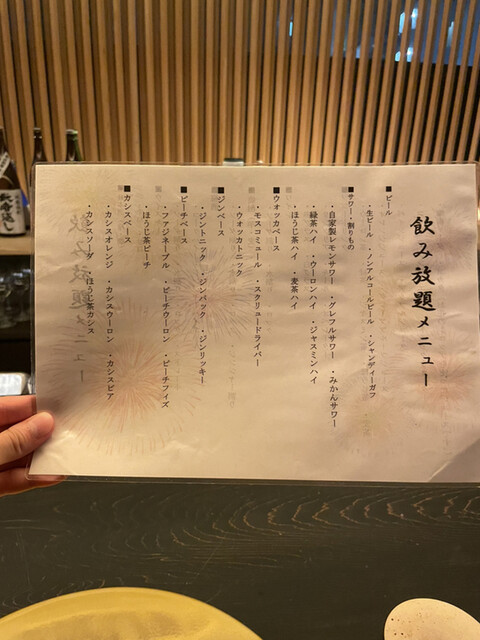 飲み放題メニュー
■ビール
・生ビール ・ノンアルコールビール ・シャンディーガフ
■サワー・割りもの
・自家製レモンサワー ・グレフルサワー ・みかんサワー
・緑茶ハイ ・ウーロンハイ ・ジャスミンハイ
・ほうじ茶ハイ ・麦茶ハイ
■ウオッカベース
・モスコミュール ・スクリュードライバー
・ウオッカトニック
■ジンベース
・ジントニック ・ジンバック ・ジンリッキー
■ピーチベース
・ファジネーブル ・ピーチウーロン ・ピーチフィズ
・ほうじ茶ピーチ
■カシスベース
・カシスオレンジ ・カシスウーロン ・カシスビア
・カシスソーダ ・ほうじ茶カシス